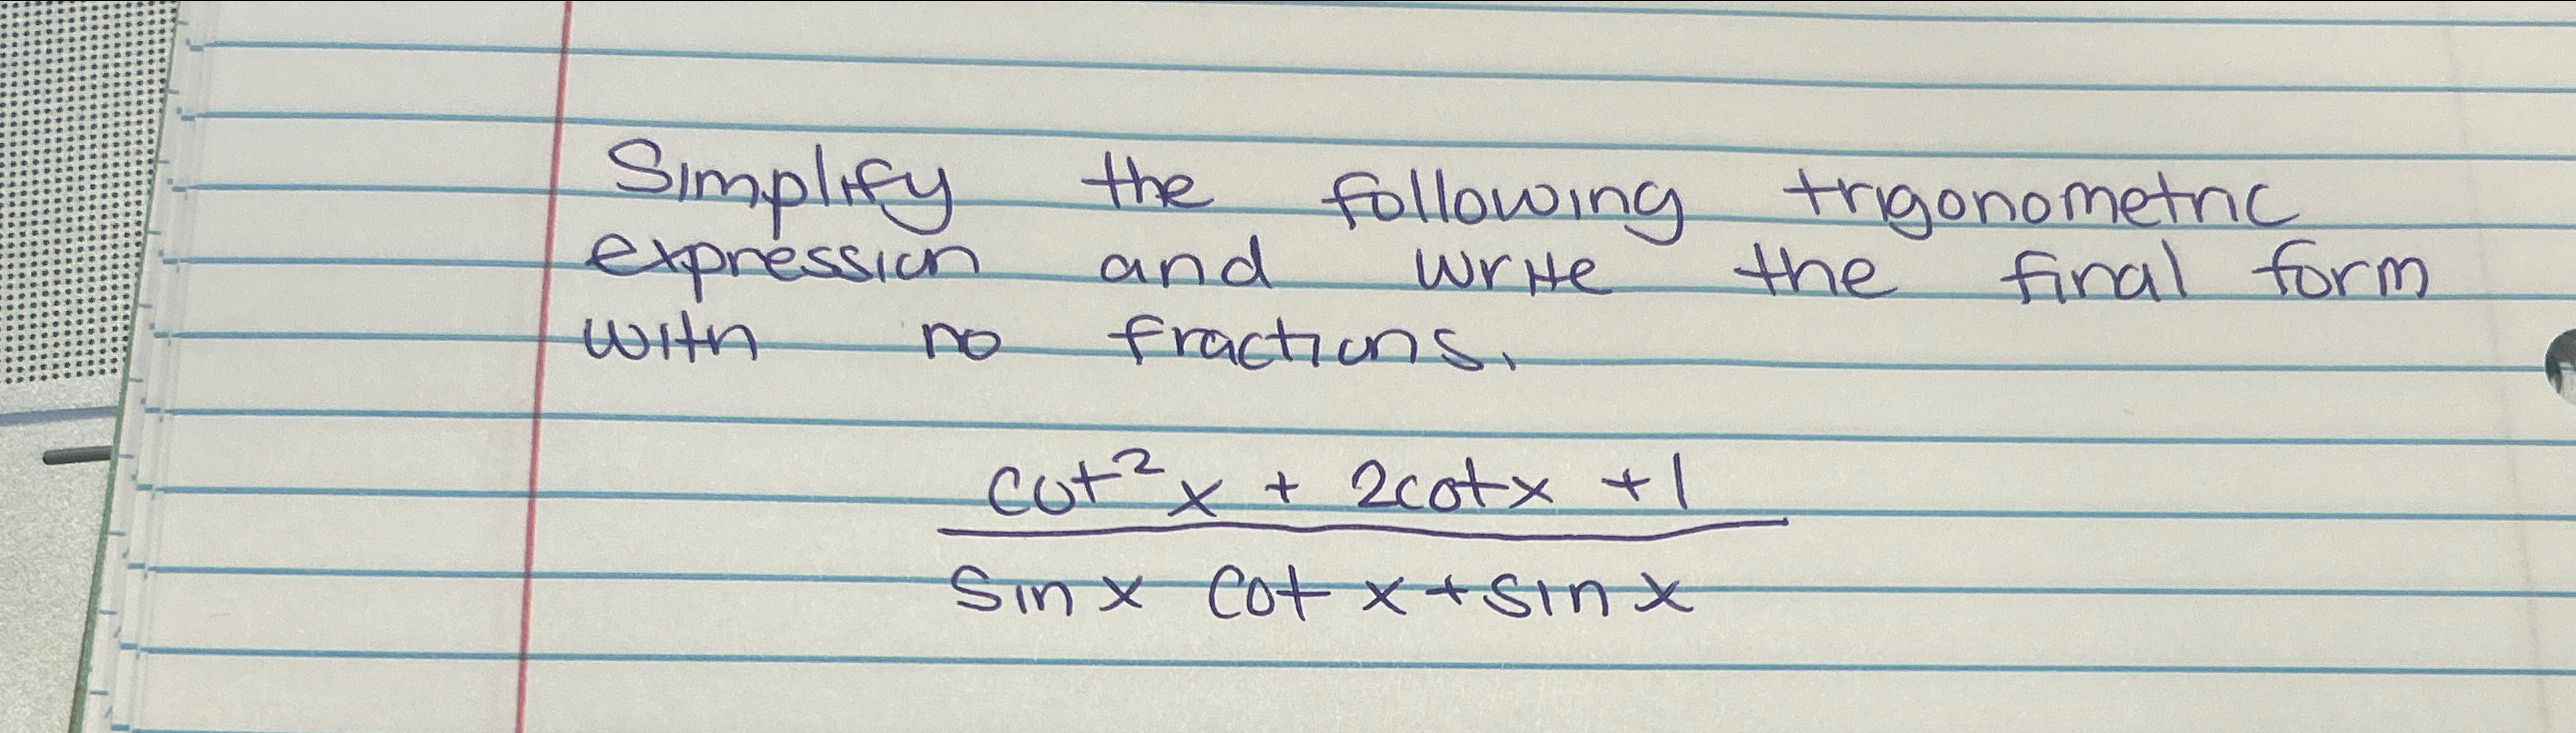 Simplify the following trigonometric
expression and write the final form
with no fractions.
cot²x + 2cotx + 1
sin x cot x + sin x